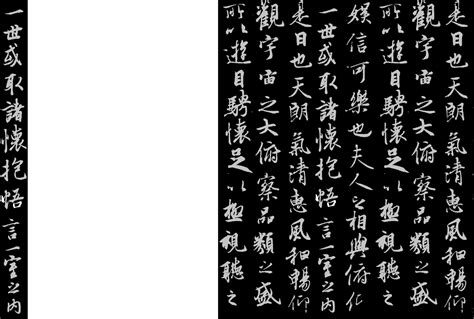 是日也天朗氣清惠風和暢仰
觀宇宙之大俯察品類之盛
所以遊目騁懷足以極視聽之
娛信可樂也夫人之相與俯仰
一世或取諸懷抱悟言一室之內
是日也天朗氣清惠風和暢仰
觀宇宙之大俯察品類之盛
所以遊目騁懷足以極視聽之
一世或取諸懷抱悟言一室之內